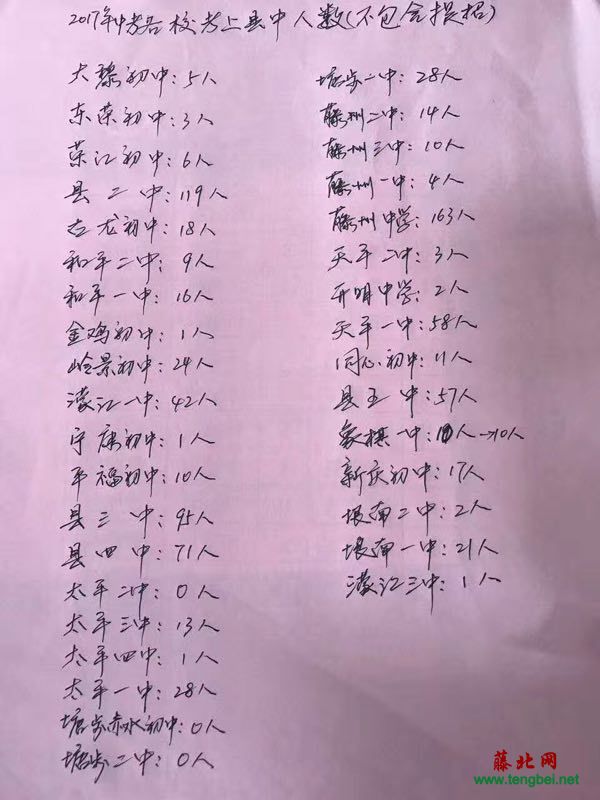 2017年中考各校考上县中人数(不包含提招)
大黎初中:5人
东荣初中:3人
荣江初中:6人
县二中:119人
古龙初中:18人
和平二中:9人
和平一中:16人
金鸡初中:1人
岭景初中:24人
濛江一中:42人
宁康初中:1人
平福初中:10人
县三中:95人
县四中:71人
太平二中:0人
太平三中:13人
太平四中:1人
太平一中:28人
塘步赤水初中:0人
塘步二中:0人
塘步一中:28人
藤州二中:14人
藤州三中:10人
藤州一中:4人
藤州中学:163人
天平二中:3人
开明中学:2人
天平一中:58人
同心初中:11人
县五中:57人
象棋一中:10人→10人
新庆初中:17人
埌南二中:2人
埌南一中:21人
濛江三中:1人
藤北网
www.tengbei.net